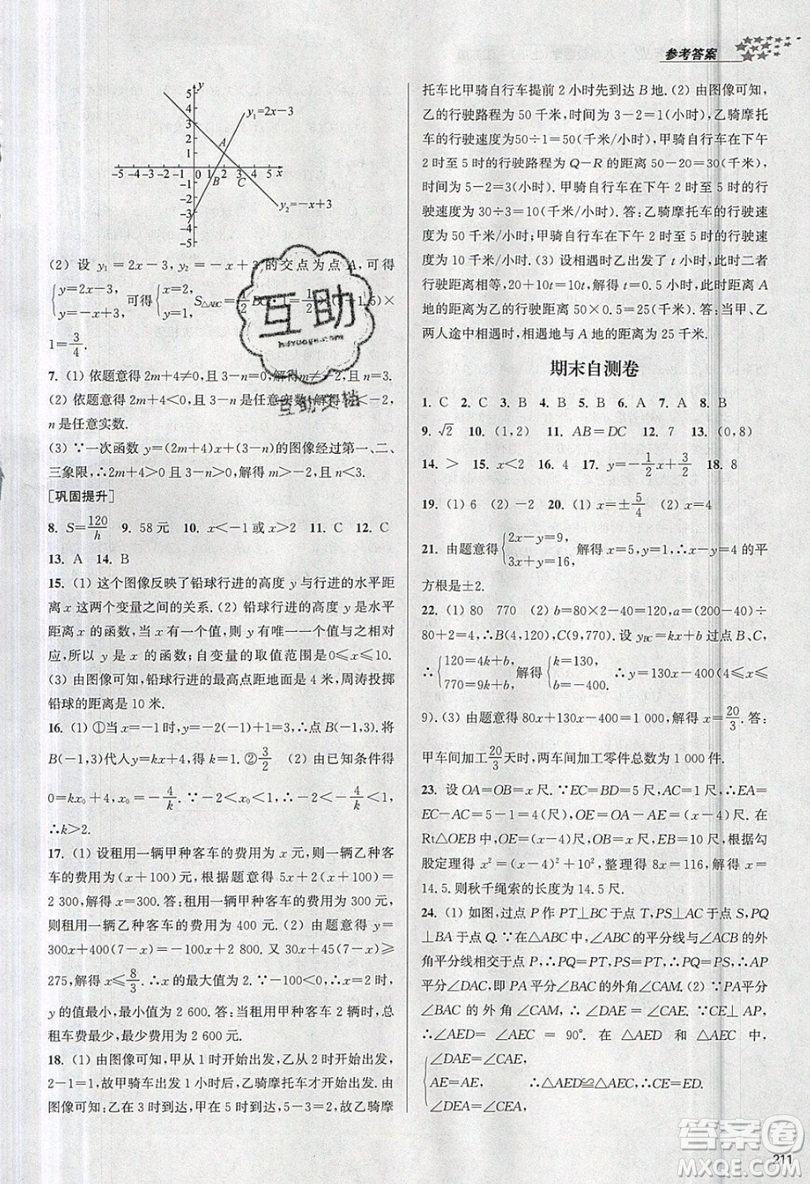 参考答案
y
5
4
3
2
1
y₁=2x-3
-5 -4 -3 -2 -1 0 1 2 3 4 5 x
A
B
C
-1
-2
-3
-4
-5
y₂=-x+3
(2) 设 y₁=2x-3,y₂=-x+3 的交点为点 A,可得
{y=2x-3, y=-x+3, 可得 {x=2, y=1. S△ABC=1/2 BC
1=3/4.
7. (1) 依题意得 2m+4≠0,且 3-n=0,解得 n=3,且
(2) 依题意得 2m+4<0,且 3-n 为任意实数,解得
m<-2,n 为任意实数.
(3) ∵一次函数 y=(2m+4)x+(3-n)的图像经过第一、二、
三象限,∴2m+4>0,3-n>0,解得 m>-2,n<3.
[巩固提升]
8. S=120/h 9. 58 元 10. x<-1 或 x>2 11. C 12. C
13. A 14. B
15. (1) 这个图像反映了铅球行进的高度 y 与行进的水平距
离 x 这两个变量之间的关系.(2) 铅球行进的高度 y 是水平
距离 x 的函数,自变量的取值范围是 0≤x≤10.
(3) 由图像可知,铅球行进的最高点距地面是 4 米,周涛投掷
铅球的距离是 10 米.
16. (1) ①当 x=-1 时,y=-2×(-1)+1=3,∴点 B(-1,3).将
B(-1,3)代入 y=kx+4,得 k=1. ②3/2 (2) 由已知条件得
kx₀+4=0,x₀=-4/k. ∵-2<x₀<-1,∴-2<-4/k<-1.
∴2<k<4.
17. (1) 设租用一辆甲种客车的费用为 x 元,则租用一辆乙种
客车的费用为(x+100)元,根据题意得 5x+2(x+100)=
2 300,解得 x=300.答:租用一辆甲种客车的费用为 300 元,
租用一辆乙种客车的费用为 400 元.(2) 由题意得 y=
300x+400(7-x)=-100x+2 800.又 30x+45(7-x)≥
275,解得 x≤8/3.∴x 的最大值为 2.∵-100<0,∴x=2 时,
y 的值最小,最小值为 2 600.答:当租用甲种客车 2 辆时,
总租车费用最少,最少费用为 2 600 元.
18. (1) 由图像可知,甲从 1 时开始出发,乙从 2 时开始出发,
2-1=1,故甲骑车出发 1 小时后,乙骑摩托车才开始出发.由
图像可知:乙在 3 时到达,甲在 5 时到达,5-3=2,故乙骑摩
托车比甲骑自行车提前 2 小时先到达 B 地.(2) 由图像可知,
乙的行驶路程为 50 千米,时间为 3-2=1(小时),乙骑摩托
车的行驶速度为50÷1=50(千米/小时).甲骑自行车在下午
行驶的路程为 Q-R 的距离 50-20=30(千米),时间为
5-2=3(小时).甲骑自行车在下午 2 时至 5 时的行
驶速度为 30÷3=10(千米/小时).答:乙骑摩托车的行驶速
度为 50 千米/小时;甲骑自行车在下午 2 时至 5 时的行驶速
度为 10 千米/小时.(3) 设甲乙出发了 t 小时,此时二者
行驶的距离相等,20+10t=50t,解得 t=0.5,此时相遇地与
A 地的距离为乙的行驶距离 50×0.5=25(千米).答:当甲、乙
两人途中相遇,相遇地与 A 地的距离为 25 千米.
期末自测卷
1. C 2. C 3. B 4. B 5. B 6. A 7. A 8. B
9. √2 10. (1,2) 11. AB=DC 12. 7 13. (0,8)
14. > 15. x<2 16. 4 17. y=-1/2x+3/2 18. 8
19. (1) 6 (2) -2 20. (1) x=±5/4 (2) x=-5
21. 由题意得{2x-y=9, x-5y=0, 解得{x=5, y=1, ∴x-y=4.∴x-y 的平
方根是±2.
22. (1) 80 770 (2) b=80×2-40=120,a=(200-40)÷
80+2=4,∴B(4,120),C(9,770).设 yBC=kx,过点 B、C,
∴{120=4k+b, 770=9k+b, 解得{k=130, b=-400, ∴y=130x-400(4≤x≤
9).(3) 由题意得 80x+130x-400=1 000,x=20/3.答:
甲车间加工20/3天时,两车间加工零件总数为 1 000 件.
23. 设 OA=OB=x 尺.∵EC=BD=5 尺,AC=1 尺,∴EA=
EC-AC=5-1=4(尺),OE=OA-AE=(x-4)尺.在
Rt△OEB中,OE=(x-4)尺,OB=x 尺,EB=10 尺,根据勾
股定理得 x²=(x-4)²+10²,整理得 8x=116,解得 x=
14.5.则秋千绳索的长度为 14.5 尺.
24. (1) 如图,过点 P 作 PT⊥BC 于点 T,PS⊥AC 于点 S,PQ
⊥BA于点 Q.∵在△ABC中,∠ABC 的平分线与∠ACB 的外
角平分线相交于点 P,∴PQ=PT,PS=PT,∴PQ=PS,∴AP
平分∠BAC 的外角∠CAM.(2) ∵CE⊥AP,AP平分
∠BAC 的外角∠CAM,∴∠DAE=∠CAE,
∠AED = ∠AEC = 90°. 在△AED 与△AEC 中,
{∠DAE=∠CAE, AE=AE, ∠DEA=∠CEA, ∴△AED≌△AEC,∴CE=ED.
互助
hdzuoye.com
互助文档
答案圈
MXQE.COM
211